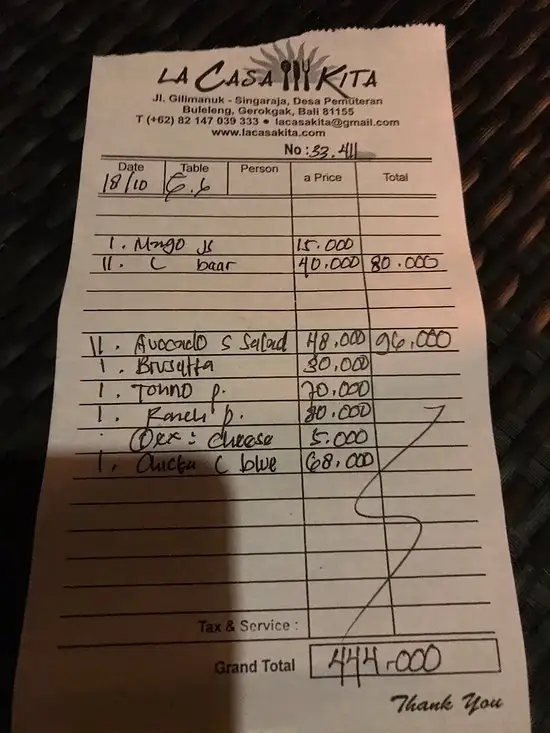 LA CASA KITA
Jl. Gilimanuk - Singaraja, Desa Pemuteran
Buleleng, Gerokgak, Bali 81155
T (+62) 82 147 039 333 • lacasakita@gmail.com
www.lacasakita.com
No : 33.411
Date Table Person a Price Total
18/10 6.6
1. Mango js 15.000
11. C baar 40.000 80.000
11. Avocado S Salad 48.000 96.000
1. Brusetta 30.000
1. Tonno p. 70.000
1. Ranch p. 80.000
cheese 5.000
1. Chicken C blue 68.000
Tax & Service :
Grand Total 444.000
Thank You